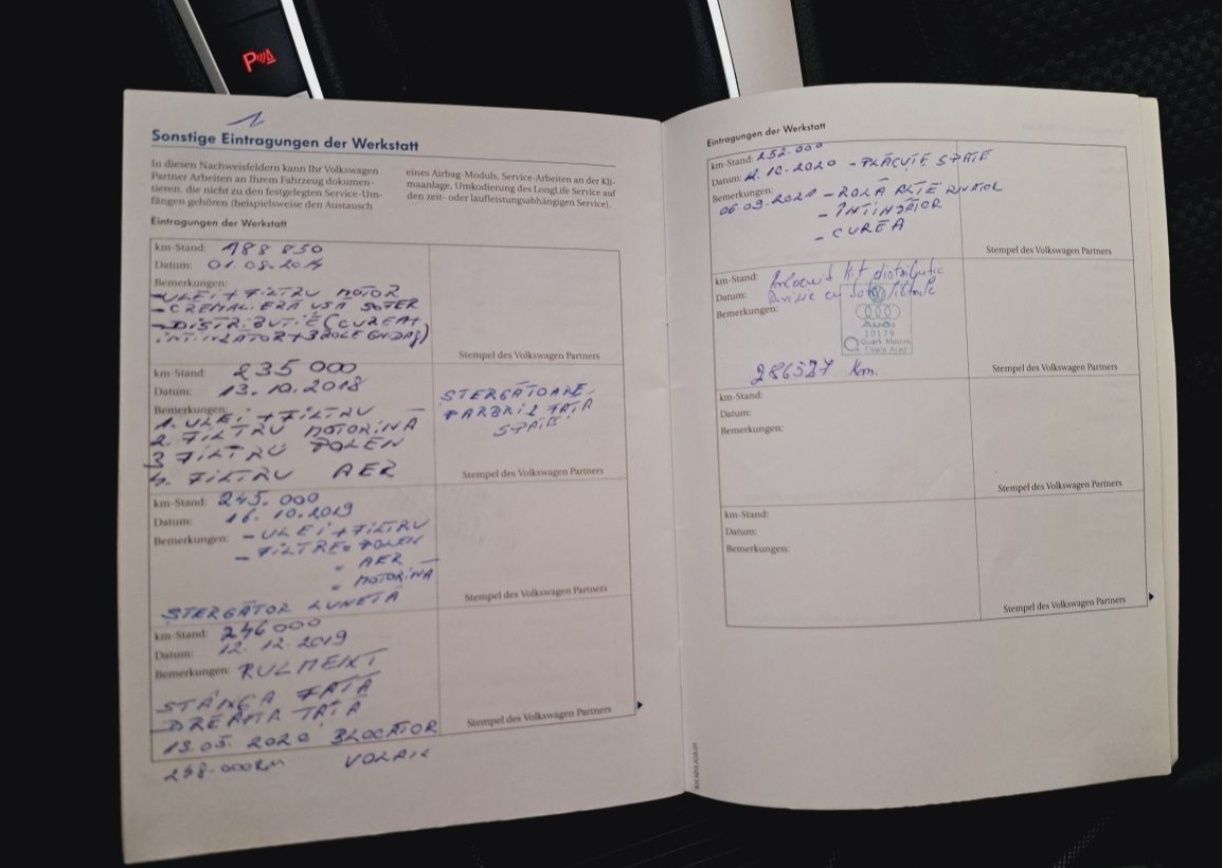 P
1
Sonstige Eintragungen der Werkstatt
In diesen Nachweisfeldern kann Ihr Volkswagen
Partner Arbeiten an Ihrem Fahrzeug dokumen-
tieren, die nicht zu den festgelegten Service-Um-
fängen gehören (beispielsweise den Austausch
eines Airbag-Moduls, Service-Arbeiten an der Kli-
maanlage, Umkodierung des LongLife Service auf
den zeit- oder laufleistungsabhängigen Service).
Eintragungen der Werkstatt
km-Stand: 188 850
Datum: 01.08.2014
Bemerkungen:
- ULEI + FILTRU MOTOR
- CREMALIERA USA SOFER
- DISTRIBUTIE (CUREA+
INTINZATOR + 3 ROLE GHIDAJ)
Stempel des Volkswagen Partners
km-Stand: 235 000
Datum: 13.10.2018
Bemerkungen:
1. ULEI + FILTRU
2. FILTRU MOTORINĂ
3 FILTRU POLEN
4. FILTRU AER
STERGĂTOARE
PARBRIZ FAȚĂ
SPATE
Stempel des Volkswagen Partners
km-Stand: 245.000
Datum: 16.10.2019
Bemerkungen: - ULEI + FILTRU
- FILTRE = POLEN
= AER
= MOTORINĂ
STERGĂTOR LUNETĂ
Stempel des Volkswagen Partners
km-Stand: 246000
Datum: 12.12.2019
Bemerkungen: RULMENT
STÂNGA FAȚĂ
DREAPTA FAȚĂ
Stempel des Volkswagen Partners
13.05.2020 BLOCATOR
248.000KM VOLAN
Eintragungen der Werkstatt
km-Stand: 252.000
Datum: 10.2020 - PLĂCUȚE SPATE
Bemerkungen:
06.09.2021 - ROLĂ
- ÎNTINZĂTOR
- CUREA
Stempel des Volkswagen Partners
km-Stand: Inlocuit kit distributie
Datum: Revizie cu filtrele
Bemerkungen:
Audi
10179
Quark Motors
Filiala Arad
286527 Km.
Stempel des Volkswagen Partners
km-Stand:
Datum:
Bemerkungen:
Stempel des Volkswagen Partners
km-Stand:
Datum:
Bemerkungen:
Stempel des Volkswagen Partners